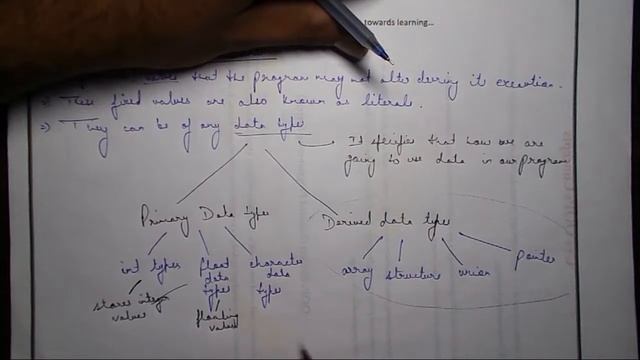 towards learning...
that the program may not alter during its execution.
2) These fixed values are also known as literals.
3) They can be of any data type
It specifies that how we are
going to use data in our program
Primary Data types
Derived data types
int types
float data types
character data type
array
structure
union
pointer
stores integer values
floating values